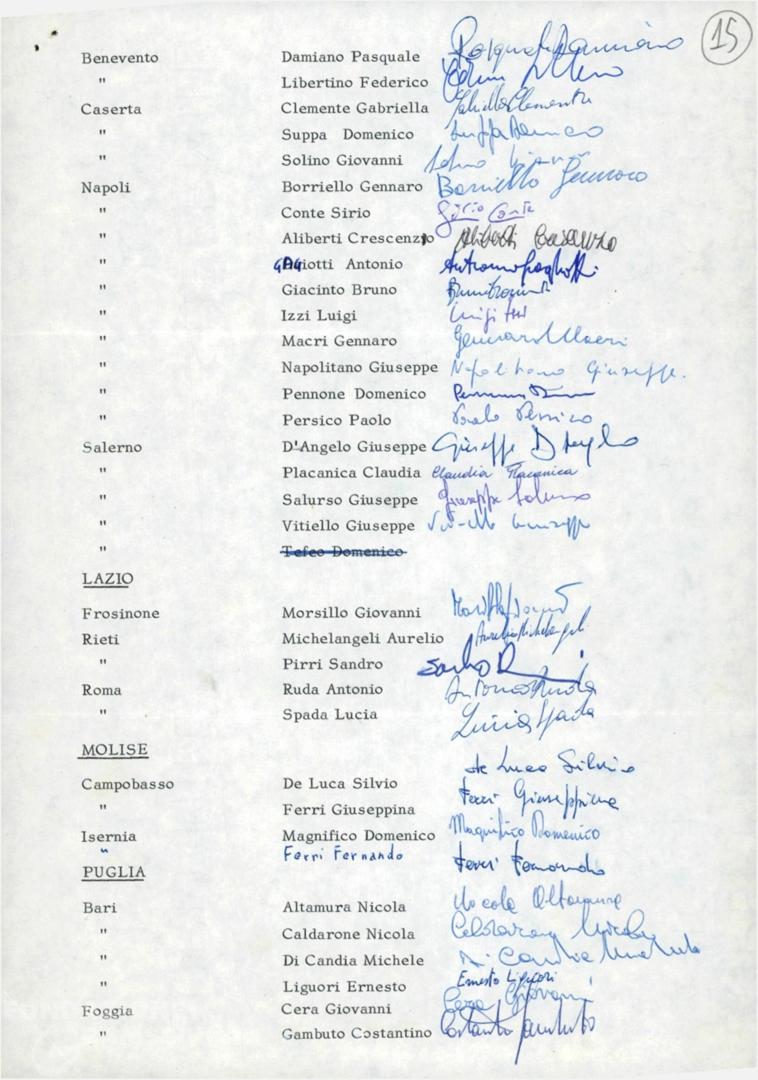 15
Benevento Damiano Pasquale Pasquale Damiano
" Libertino Federico
Caserta Clemente Gabriella Gabriella Clemente
" Suppa Domenico Suppa Domenico
" Solino Giovanni Solino Giovanni
Napoli Borriello Gennaro Borriello Gennaro
" Conte Sirio Sirio Conte
" Aliberti Crescenzio Aliberti Crescenzo
" GAGliotti Antonio Antonio Gagliotti
" Giacinto Bruno
" Izzi Luigi Luigi Izzi
" Macri Gennaro Gennaro Macri
" Napolitano Giuseppe Napolitano Giuseppe.
" Pennone Domenico
" Persico Paolo Paolo Persico
Salerno D'Angelo Giuseppe Giuseppe D'Angelo
" Placanica Claudia Claudia Placanica
" Salurso Giuseppe Giuseppe Salurso
" Vitiello Giuseppe Vitiello Giuseppe
" Tefeo Domenico
LAZIO
Frosinone Morsillo Giovanni
Rieti Michelangeli Aurelio Aurelio Michelangeli
" Pirri Sandro Sandro
Roma Ruda Antonio Antonio Ruda
" Spada Lucia Lucia Spada
MOLISE
Campobasso De Luca Silvio de Luca Silvio
" Ferri Giuseppina Ferri Giuseppina
Isernia Magnifico Domenico Magnifico Domenico
" Ferri Fernando Ferri Fernando
PUGLIA
Bari Altamura Nicola Nicola Altamura
" Caldarone Nicola Caldarone Nicola
" Di Candia Michele Di Candia Michele
" Liguori Ernesto Ernesto Liguori
Foggia Cera Giovanni Cera Giovanni
" Gambuto Costantino Costantino Gambuto